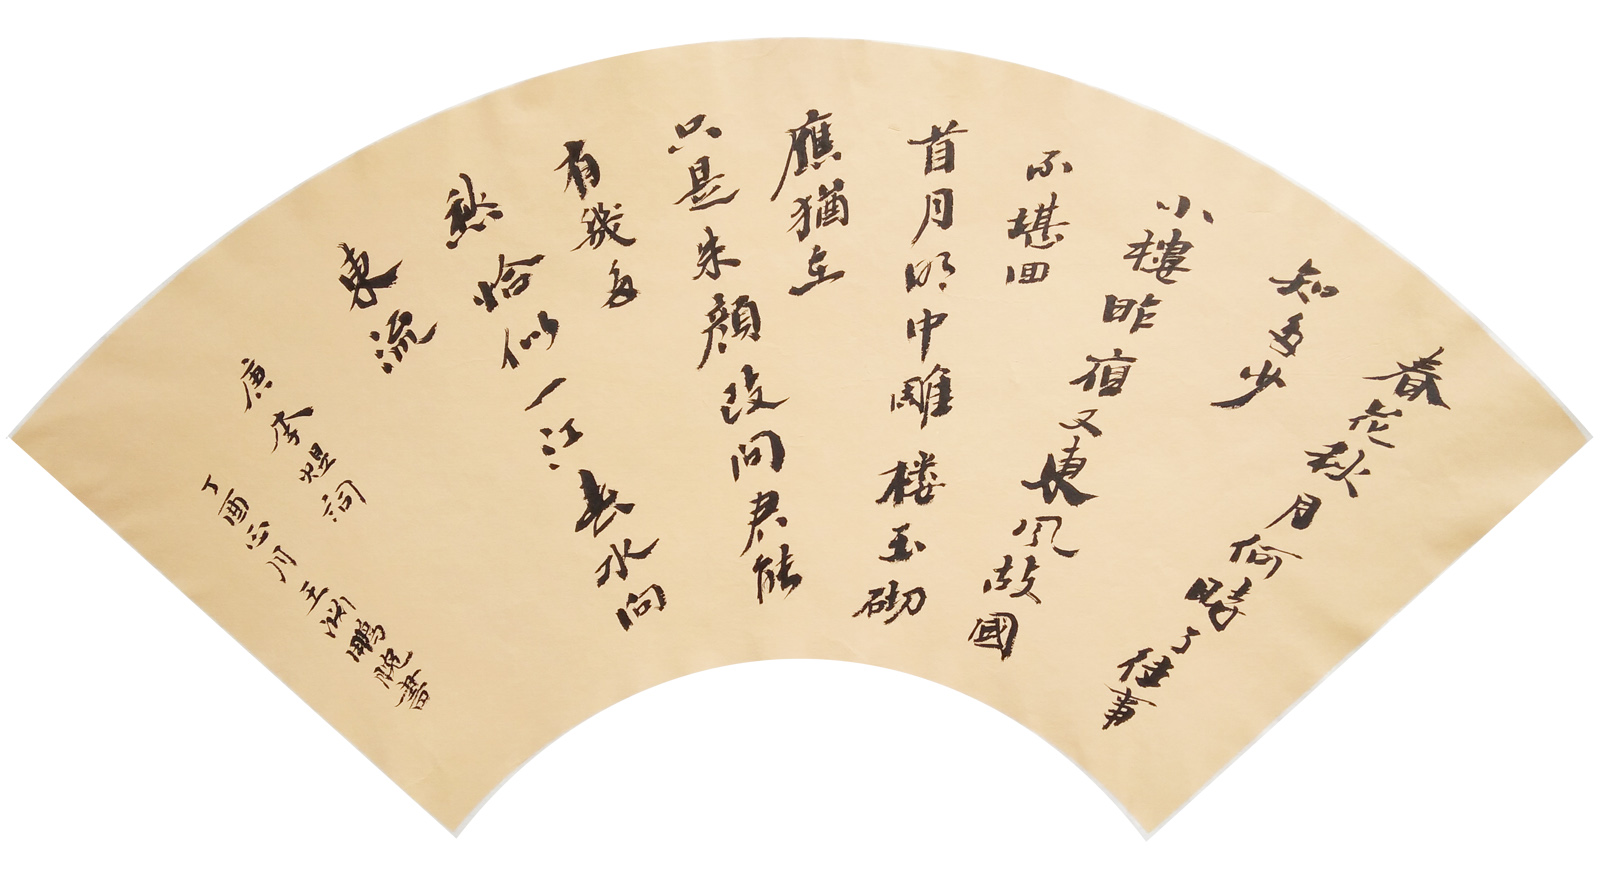 春花秋月何時了往事
知多少
小樓昨宿又東風故國
不堪回
首月明中雕楼玉砌
應猶在
只是朱顔改问君能
有幾多
愁恰似一江春水向
東流
唐李煜词
丁酉正月王渊鹏書